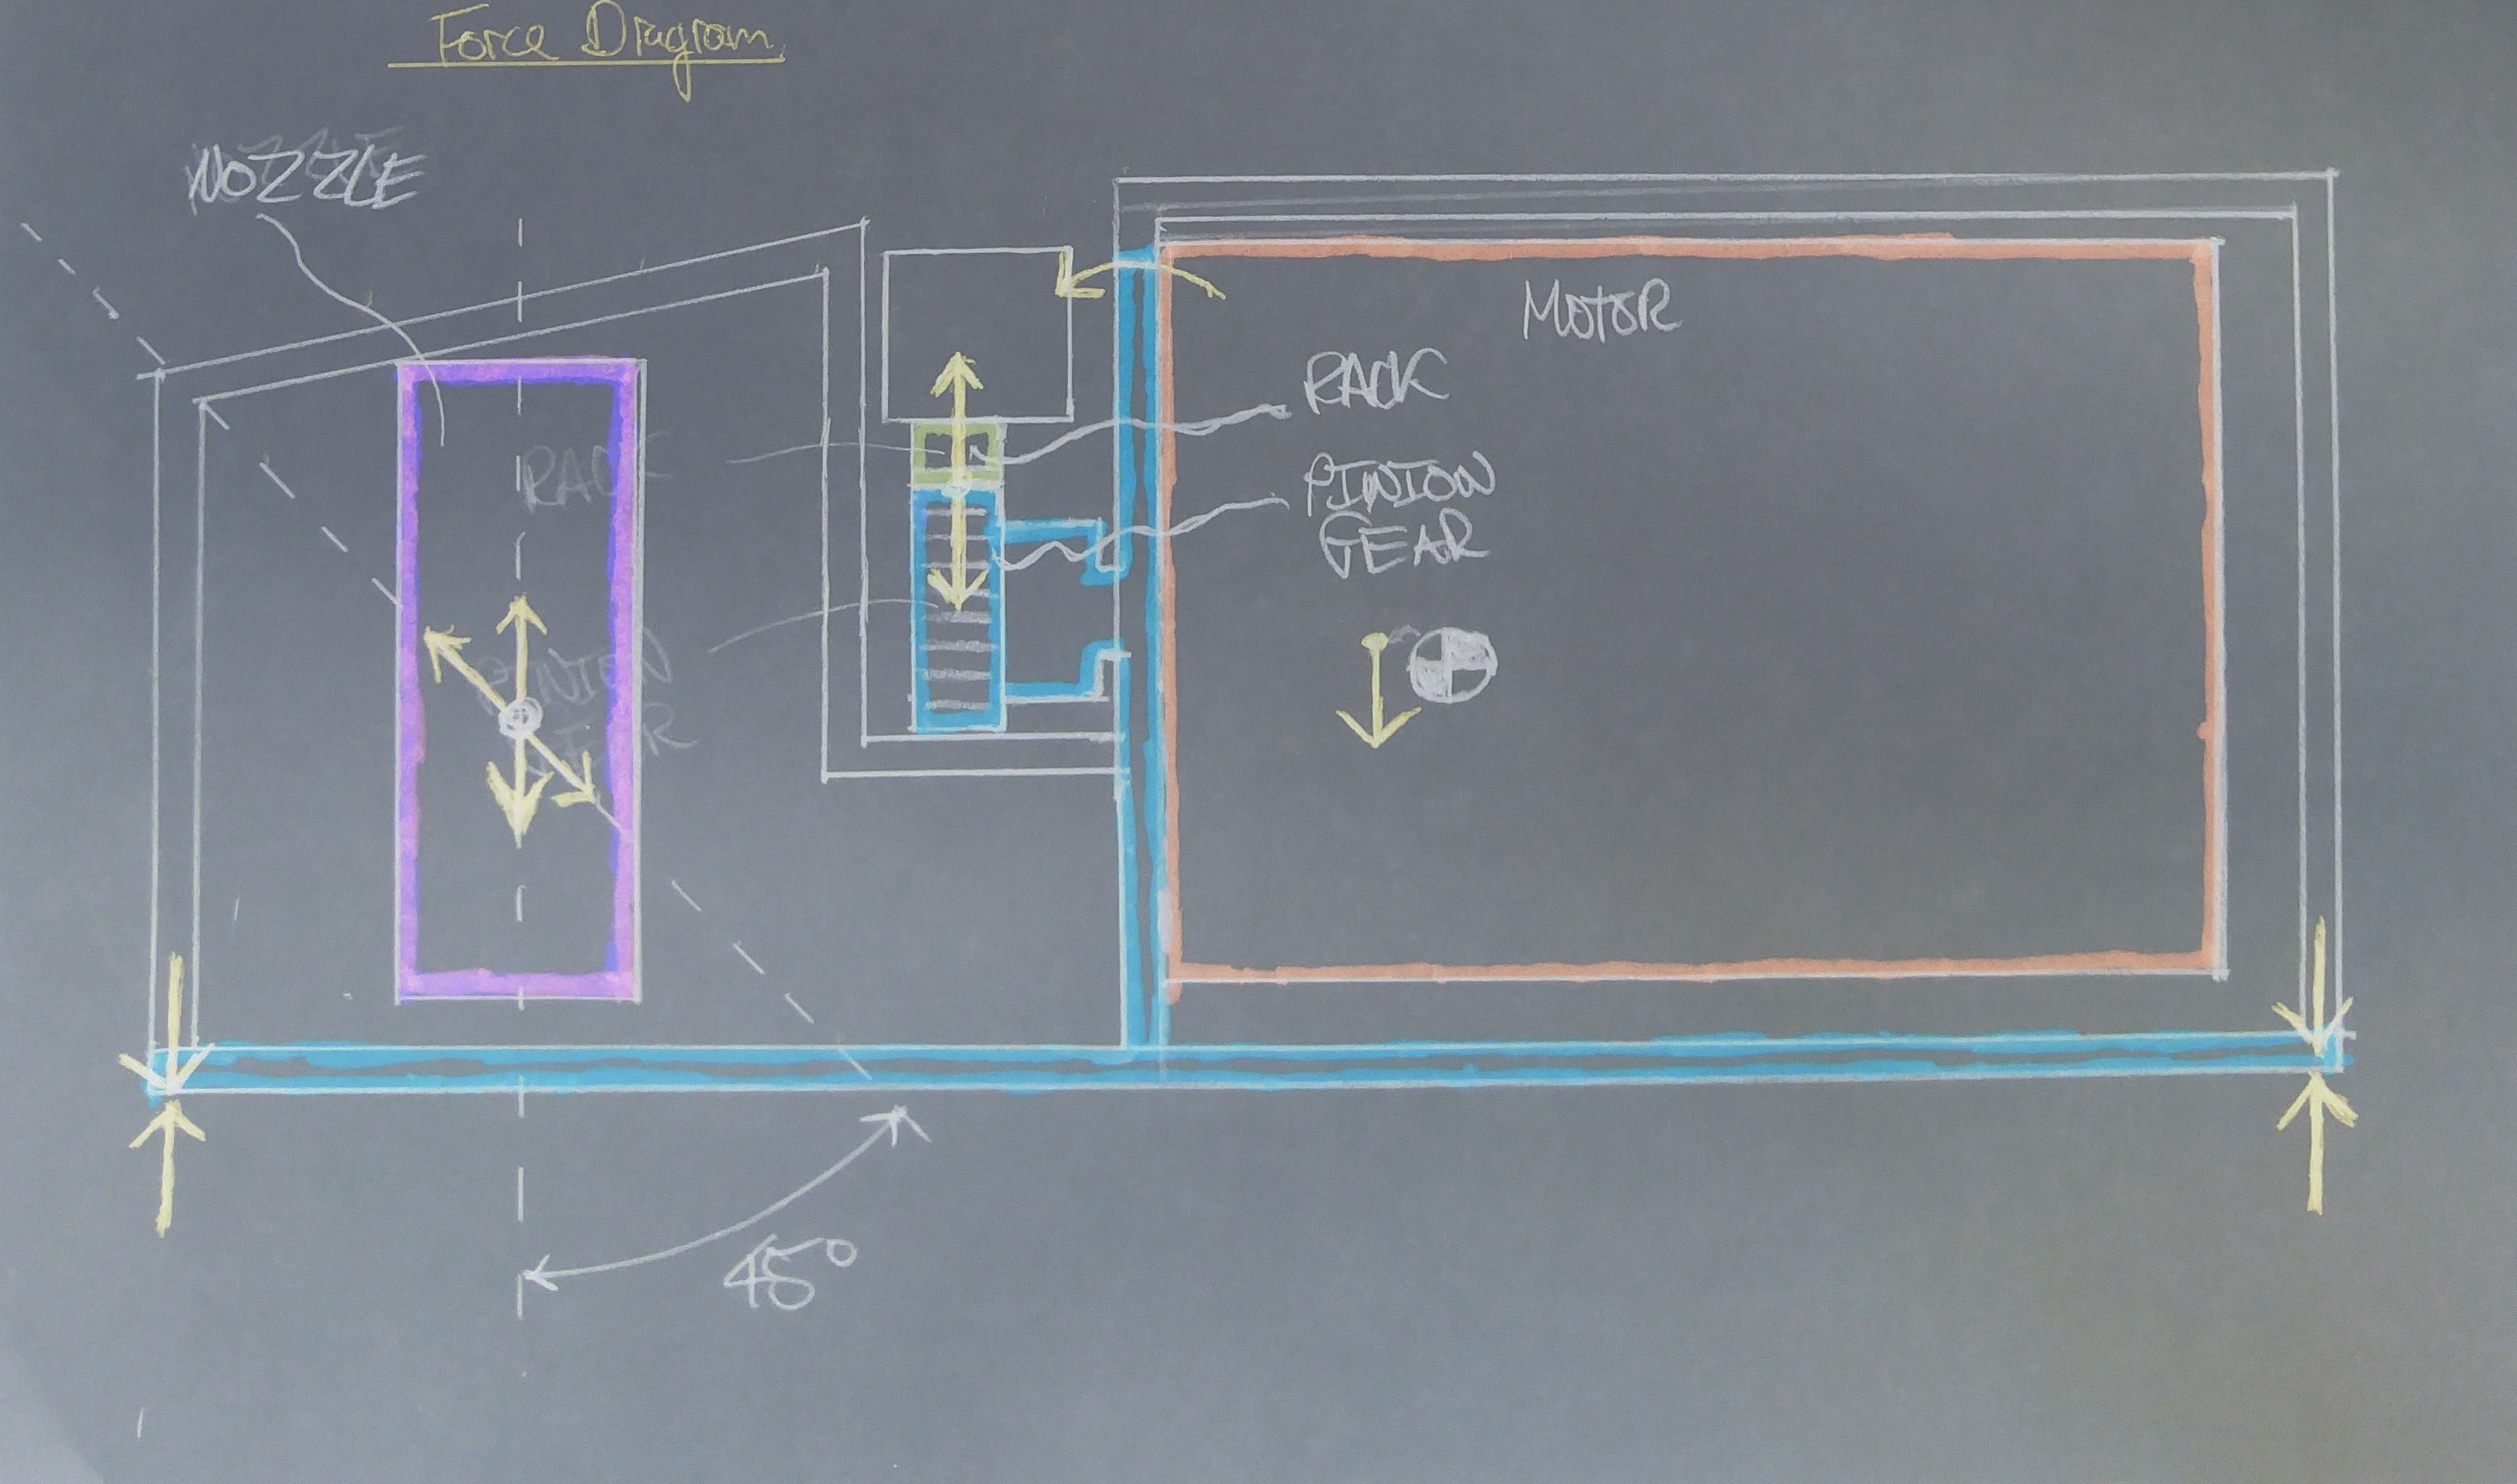 Force Diagram
NOZZLE
RACK
PINION
GEAR
MOTOR
45°
RACK
PINION
GEAR